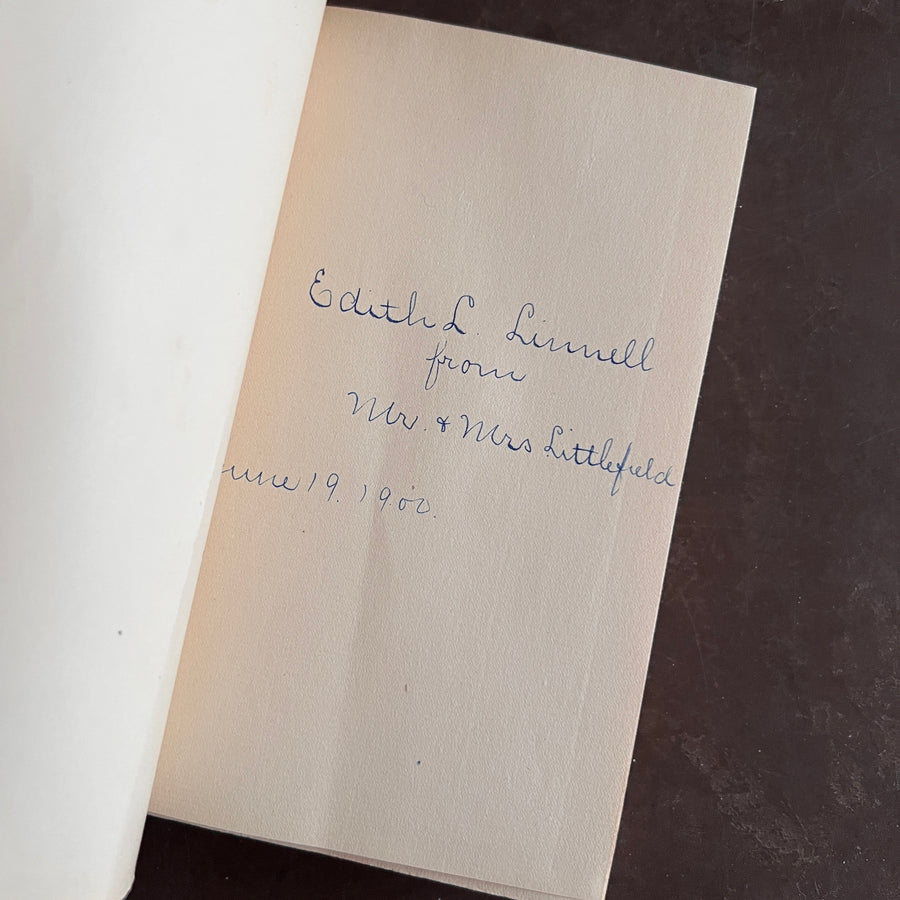 Edith L. Linnell
from
Mr. & Mrs Littlefield
une 19. 1900.